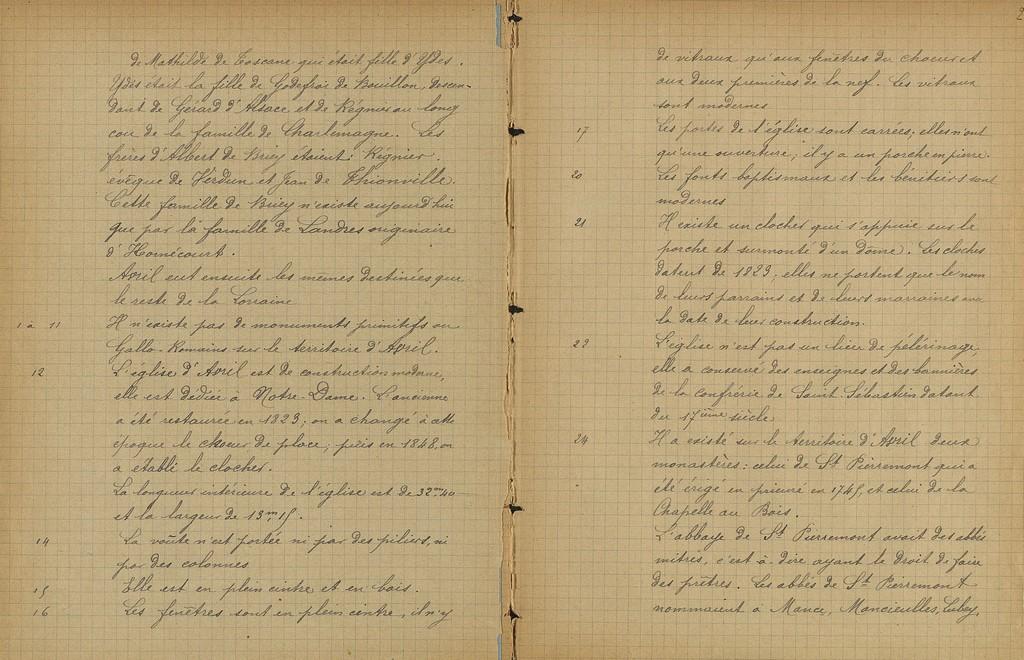 de Mathilde de Toscane qui était fille d'Ydes.
Ydes était la fille de Godefroi de Bouillon, descen-
dant de Gérard d'Alsace et de Régnier au long
cou de la famille de Charlemagne. Les
frères d'Albert de Briey étaient: Régnier.
évêque de Verdun et Jean de Thionville.
Cette famille de Briey n'existe aujourd'hui
que par la famille de Landres originaire
d'Hornécourt.
Avril eut ensuite les mêmes destinées que
le reste de la Lorraine
1 à 11 Il n'existe pas de monuments primitifs ou
Gallo-Romains sur le territoire d'Avril.
12 L'église d'Avril est de construction moderne,
elle est dédiée à Notre-Dame. L'ancienne
a été restaurée en 1823; on a changé à cette
époque le chœur de place; puis en 1848, on
a établi le clocher.
La longueur intérieure de l'église est de 32m40
et la largeur de 13m,15.
14 La voûte n'est portée ni par des piliers, ni
par des colonnes
15 Elle est en plein cintre et en bois.
16 Les fenêtres sont en plein cintre, il n'y
2
de vitraux qu'aux fenêtres du chœur et
aux deux premières de la nef. Ces vitraux
sont modernes
17 Les portes de l'église sont carrées; elles n'ont
qu'une ouverture; il y a un porche en pierre.
20 Les fonts baptismaux et les bénitiers sont
modernes
21 Il existe un clocher qui s'appuie sur le
porche et surmonté d'un dôme. Les cloches
datent de 1823; elles ne portent que le nom
de leurs parrains et de leurs marraines avec
la date de leur construction.
22 L'église n'est pas un lieu de pélérinage,
elle a conservé des enseignes et des bannières
de la confrérie de Saint Sébastien datant
du 17ième siècle
24 Il a existé sur le territoire d'Avril deux
monastères: celui de St Pierremont qui a
été érigé en prieuré en 1745, et celui de la
Chapelle au Bois.
L'abbaye de St Pierremont avait des abbés
mitrés, c'est à dire ayant le droit de faire
des prêtres. Les abbés de St Pierremont
nommaient à Mance, Mancieulles, Lubey,